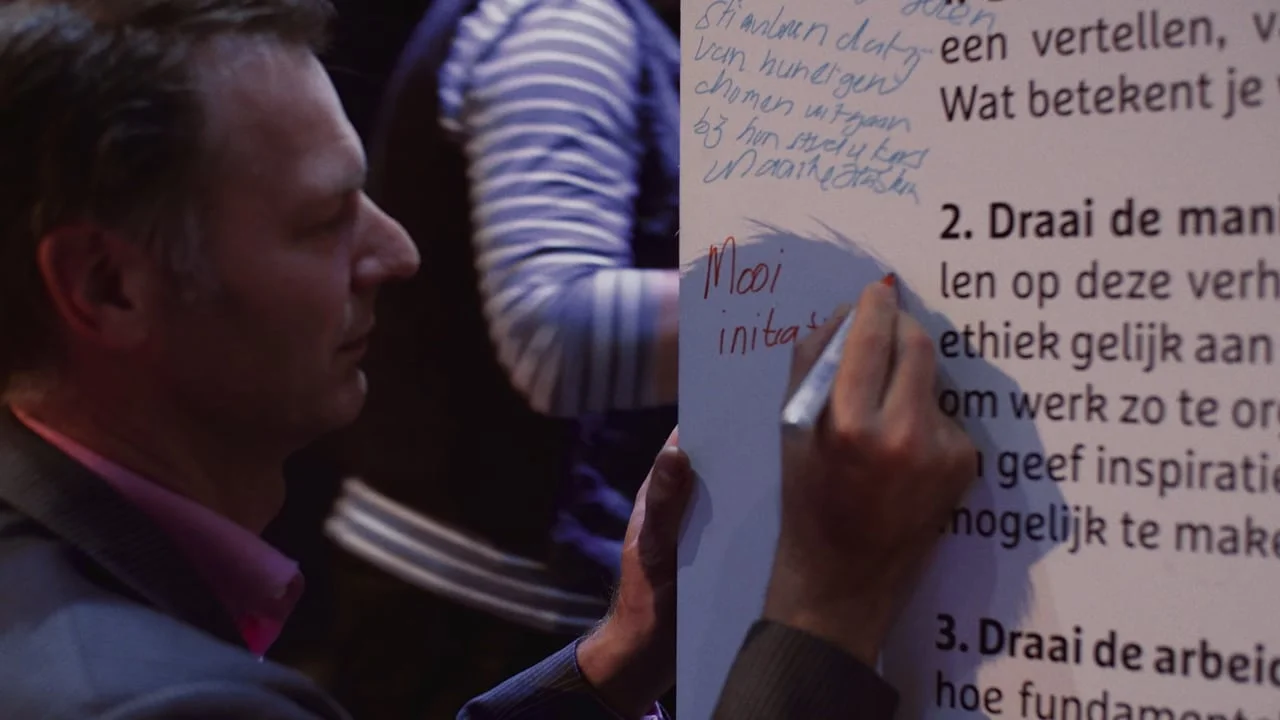 stimuleren dat ze
van hun eigen
dromen uitgaan
bij hun studiekeus
Mooi
initiati
een vertellen, v
Wat betekent je
2. Draai de man
len op deze verh
ethiek gelijk aan
om werk zo te or
n geef inspiratie
mogelijk te make
3. Draai de arbeid
hoe fundament